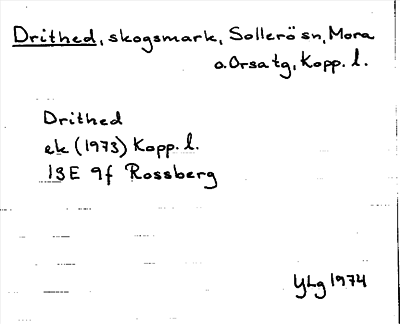 Drithed, skogsmark, Sollerö sn, Mora
o. Orsa tg, Kopp. l.
Drithed
ek (1973) Kopp. l.
13E 9f Rossberg
YLg 1974